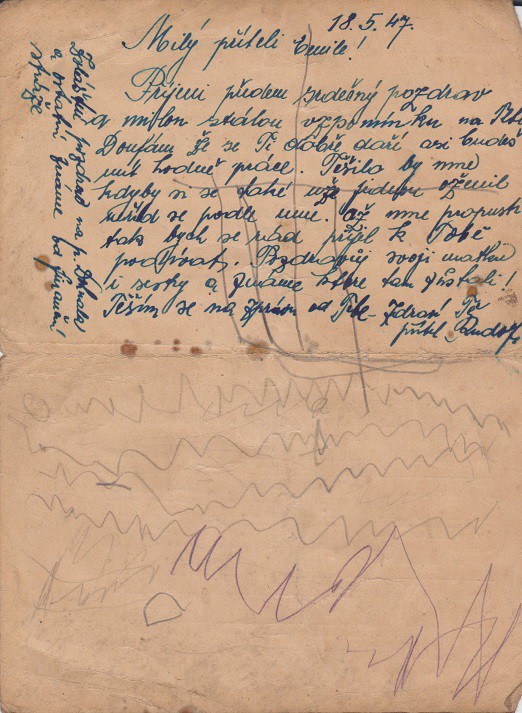 18.5.47.
Milý příteli Emile!
Přijmi předem srdečný pozdrav
a milou stálou vzpomínku na Tebe
Doufám že se Ti dobře daří asi budeš
mít hodně práce. Těšilo by mne
kdyby si se také už jednou oženil
a řid se podle mne. až mne propustí
tak bych se rád přijel k Tobě
podívat. Pozdravuj svoji matku
i sestry a známé které tam zůstali!
Těším se na zprávu od Tebe Zdraví Tě
přítel Rudolf
Zvláštní pozdrav na p.
a ostatní známe od finanční
stráže